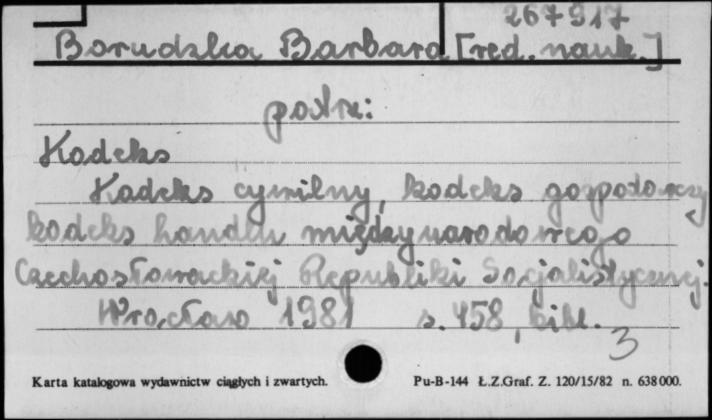 267917
Borudzka Barbara [red. nauk.]
patrz:
Kodeks
Kodeks cywilny, kodeks gospodarczy
kodeks handlu międzynarodowego
Czechosłowackiej Republiki Socjalistycznej.
Wrocław 1981 s. 458, bibl.
3
Karta katalogowa wydawnictw ciągłych i zwartych. Pu-B-144 Ł.Z.Graf. Z. 120/15/82 n. 638000.